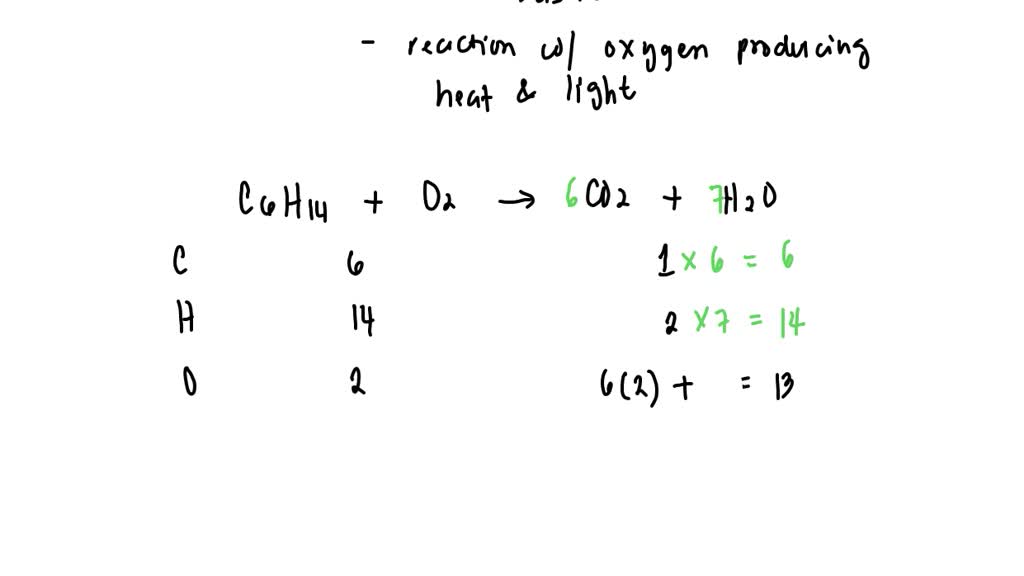 - reaction w/ oxygen producing
heat & light
C6H14 + O2 → 6CO2 + 7H2O
C 6 1 × 6 = 6
H 14 2 × 7 = 14
O 2 6(2) + = 13